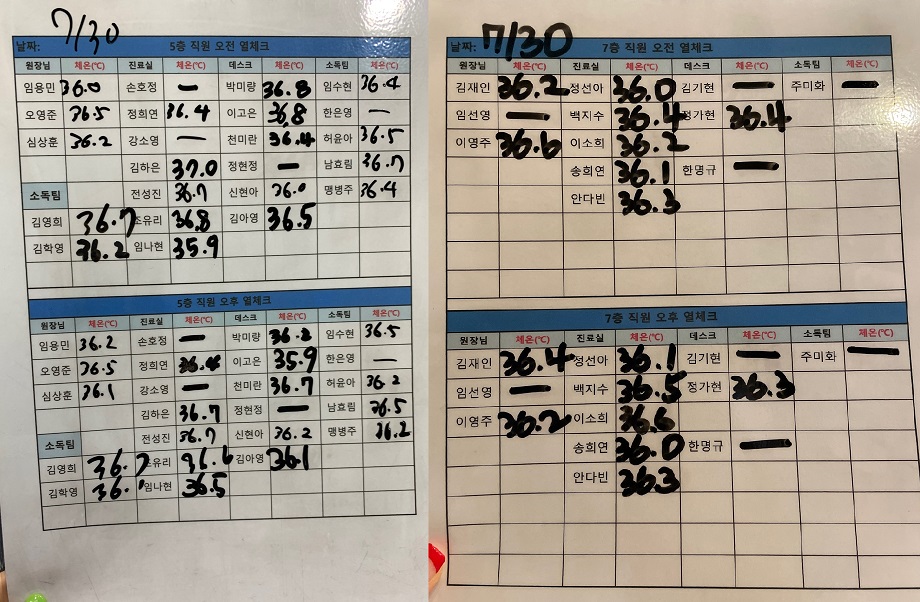 7/30
날짜: 5층 직원 오전 열체크
원장님 체온(℃) 진료실 체온(℃) 데스크 체온(℃) 소독팀 체온(℃)
임용민 36.0 손호정 — 박미량 36.8 임수현 36.4
오영준 36.5 정희연 36.4 이고은 36.8 한은영 —
심상훈 36.2 강소영 — 천미란 36.4 허윤아 36.5
김하은 37.0 정현정 — 남효림 36.7
소독팀 전성진 36.7 신현아 36.0 맹병주 36.4
김영희 36.7 조유리 36.8 김아영 36.5
김학영 36.2 임나현 35.9
5층 직원 오후 열체크
원장님 체온(℃) 진료실 체온(℃) 데스크 체온(℃) 소독팀 체온(℃)
임용민 36.2 손호정 — 박미량 36.2 임수현 36.5
오영준 36.5 정희연 이고은 35.9 한은영 —
심상훈 36.1 강소영 — 천미란 36.7 허윤아 36.2
김하은 36.7 정현정 — 남효림 36.5
소독팀 전성진 36.7 신현아 36.2 맹병주 36.2
김영희 36.7 조유리 36.6 김아영 36.1
김학영 임나현 36.5
날짜: 7/30 7층 직원 오전 열체크
원장님 체온(℃) 진료실 체온(℃) 데스크 체온(℃) 소독팀 체온(℃)
김재인 36.2 정선아 36.0 김기현 — 주미화 —
임선영 — 백지수 36.4 정가현 36.4
이영주 36.6 이소희 36.2
송희연 36.1 한명규 —
안다빈 36.3
7층 직원 오후 열체크
원장님 체온(℃) 진료실 체온(℃) 데스크 체온(℃) 소독팀 체온(℃)
김재인 36.4 정선아 36.1 김기현 — 주미화 —
임선영 — 백지수 36.5 정가현 36.3
이영주 36.2 이소희 36.6
송희연 36.0 한명규 —
안다빈 36.3